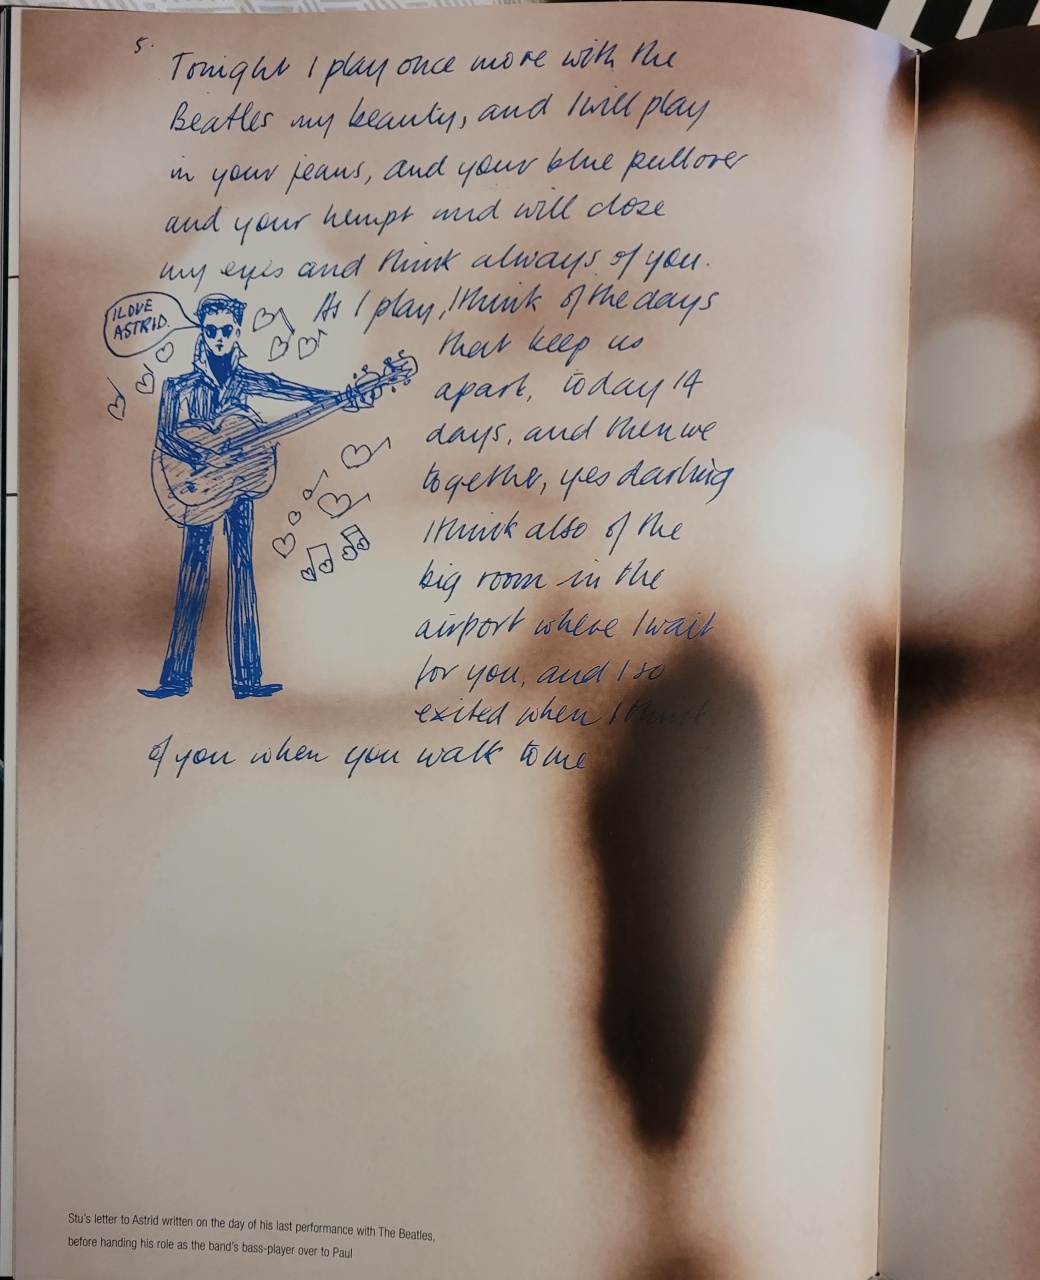 5.
Tonight I play once more with the
Beatles my beauty, and I will play
in your jeans, and your blue pullover
and your hempt and will close
my eyes and think always of you.
I LOVE
ASTRID.
As I play, I think of the days
that keep us
apart, today 14
days, and then we
together, yes darling
I think also of the
big room in the
airport where I wait
for you, and I so
exited when I think
of you when you walk to me
Stu's letter to Astrid written on the day of his last performance with The Beatles,
before handing his role as the band's bass-player over to Paul